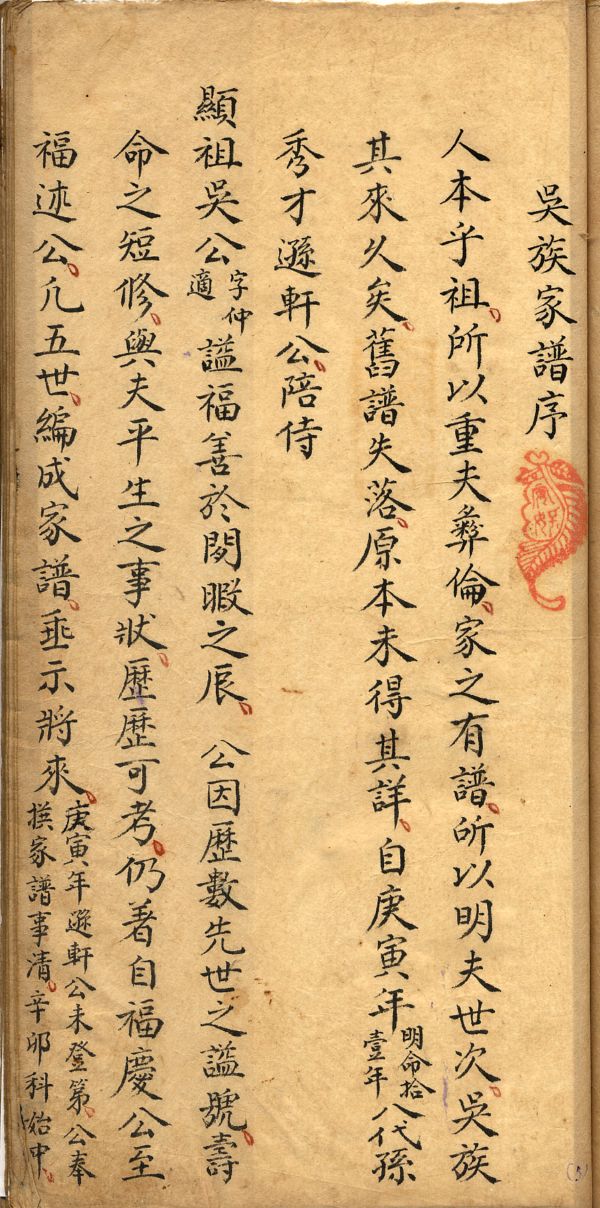 吳族家譜序
人本乎祖所以重夫彝倫家之有譜所以明夫世次吳族
其來久矣舊譜失落原本未得其詳自庚寅年明命拾壹年八代孫
秀才遜軒公陪侍
顯祖吳公字仲適諡福善於閒暇之辰公因歷數先世之諡號壽
命之短修與夫平生之事狀歷歷可考仍着自福慶公至
福述公凢五世編成家譜垂示將來庚寅年遜軒公未登第公奉撰家譜事清辛卯科始中